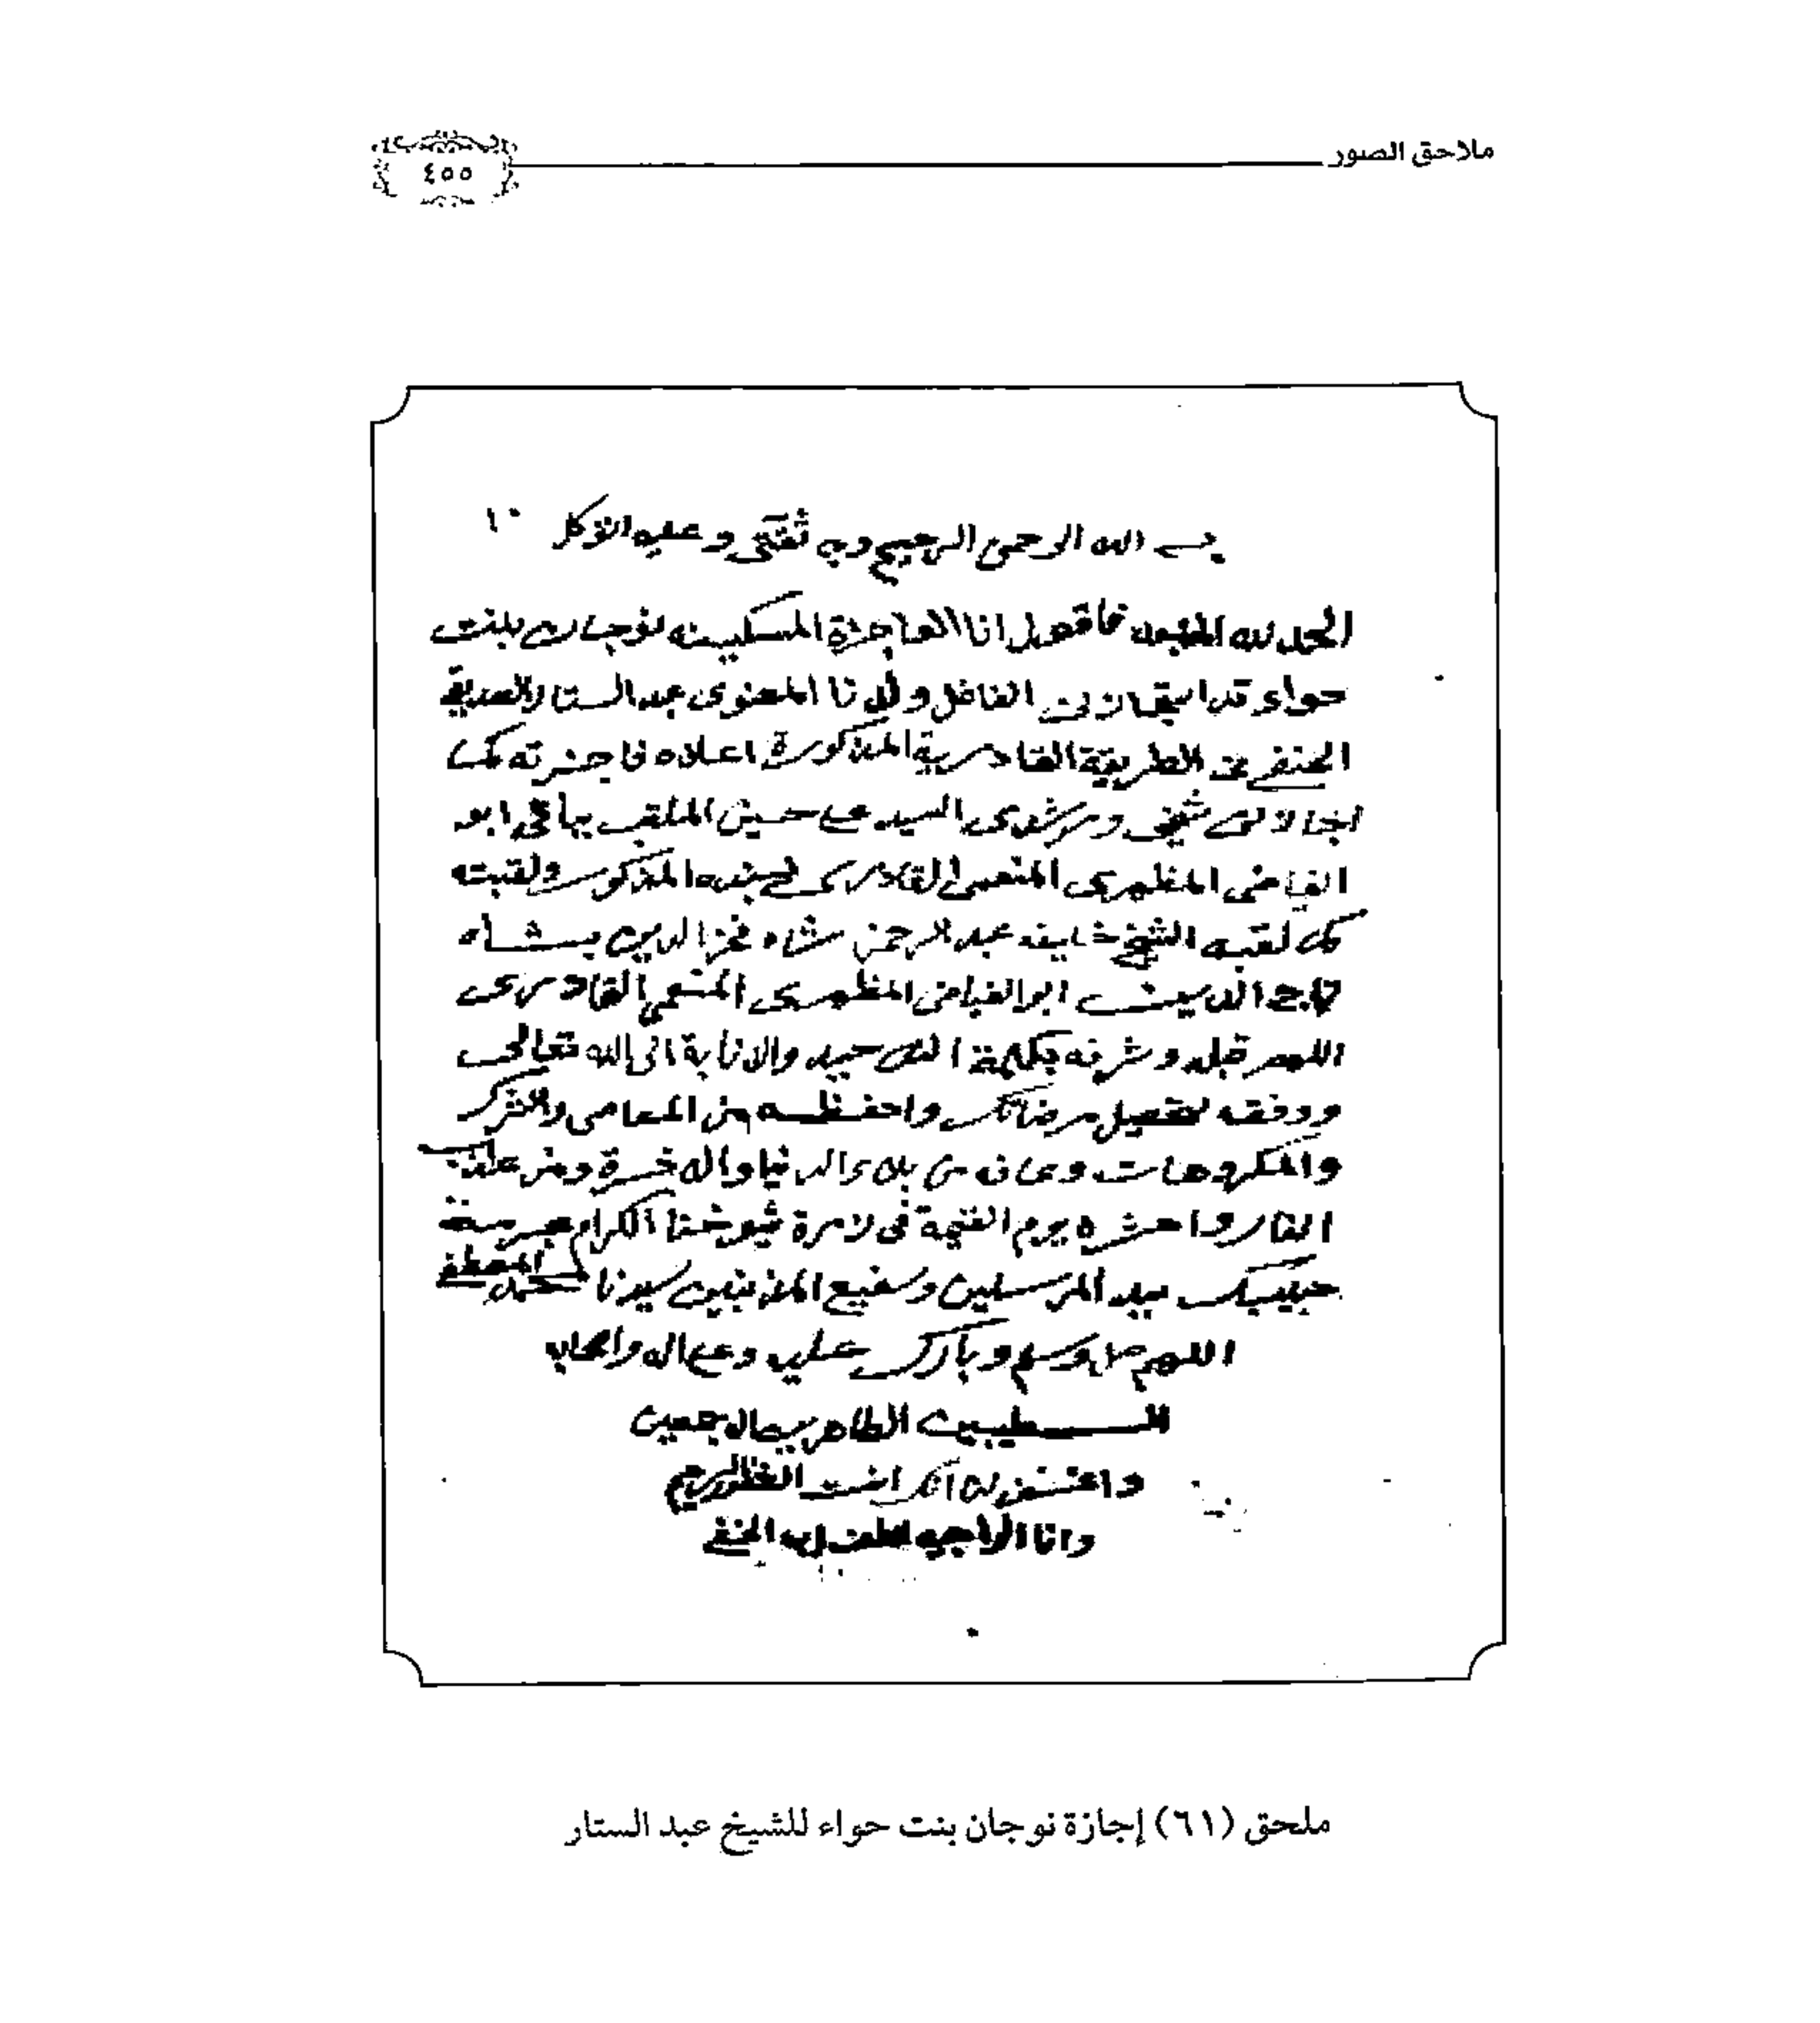 ملاحق الصور
٤٥٥
الله الرحمن الرحيم وبه ثقتي وعليه التوكل
الحمد لله فاقول انا العاجزة المسكينه نوجان بنت
حواء قد الفاضل ولدنا المعنوى عبد الستار الصديقي
الحنفي الطريقة القادرية المذكورة اعلاه فاجزته كما
اجازني شيخي ومرشدى السيد حسين الملقب ابو
الفياض المظهرى المنعمى القادرى المذكور ولقبته
كما لقبه الشيخ خليفه عبد الرحمن شاه فخر الدين بشاه
تاج الدين ابو الفياض المظهرى المنعمى القادرى
اللهم وشرفه بكلمة التوحيد والانابة الى الله تعالى
ووفقه لتحصيل مرضاتك واحفظه من المعاصى والشرك
والمكروهات وعافه من بلاء الدنيا والاخرة ومن عذاب
النار واحشره يوم القيمة فى زمرة شيوخنا الكرام بحرمة
حبيبك سيد المرسلين وشفيع المذنبين سيدنا محمد المصطفى
اللهم صل وسلم وبارك عليه وعلى اله واصحابه
الطيبين الطاهرين اجمعين
واغفر لنا انك انت الغفور الرحيم
وانا
ملحق (٦١) إجازة نوجان بنت حواء للشيخ عبد الستار